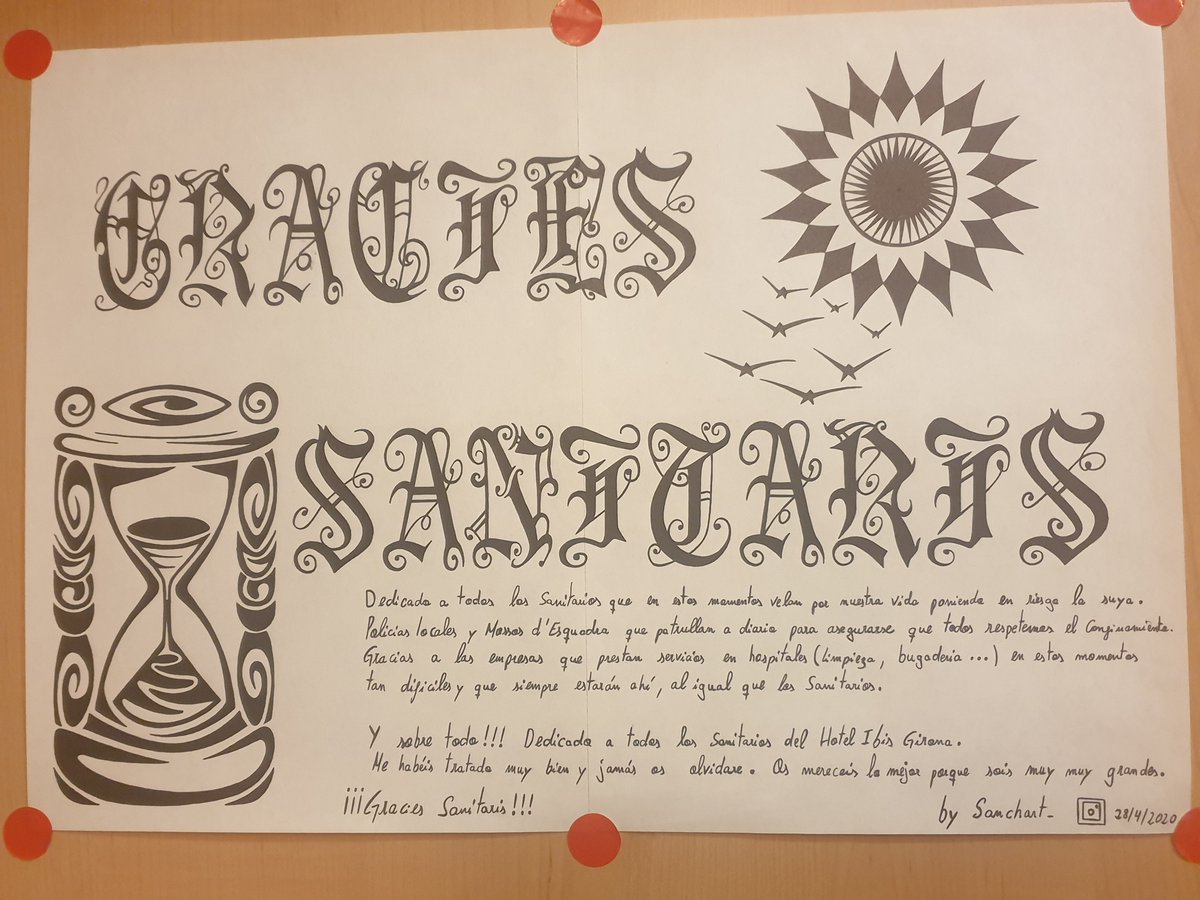 GRACIES
SANITARIS
Dedicado a todos los Sanitarios que en estos momentos velan por nuestra vida poniendo en riesgo la suya.
Policias locales y Mossos d'Esquadra que patrullan a diario para asegurarse que todos respetemos el Confinamiento.
Gracias a las empresas que prestan servicios en hospitales (limpieza, bugaderia ...) en estos momentos
tan dificiles y que siempre estarán ahí, al igual que los Sanitarios.
Y sobre todo!!! Dedicado a todos los Sanitarios del Hotel Ibis Girona.
Me habéis tratado muy bien y jamás os olvidare. Os mereceis lo mejor porque sois muy muy grandes.
¡¡¡Gracies Sanitaris!!!
by Sanchart_ 28/4/2020